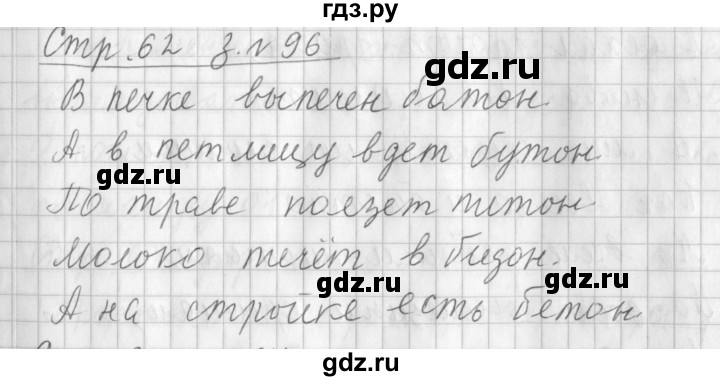 гдз.ру
Стр. 62 з. №96
gdz.ru
В печке выпечен батон
А в петлицу вдет бутон
gdz.ru
По траве ползет питон
Молоко течёт в бидон.
gdz.ru gdz.ru
А на стройке есть бетон
gdz.ru